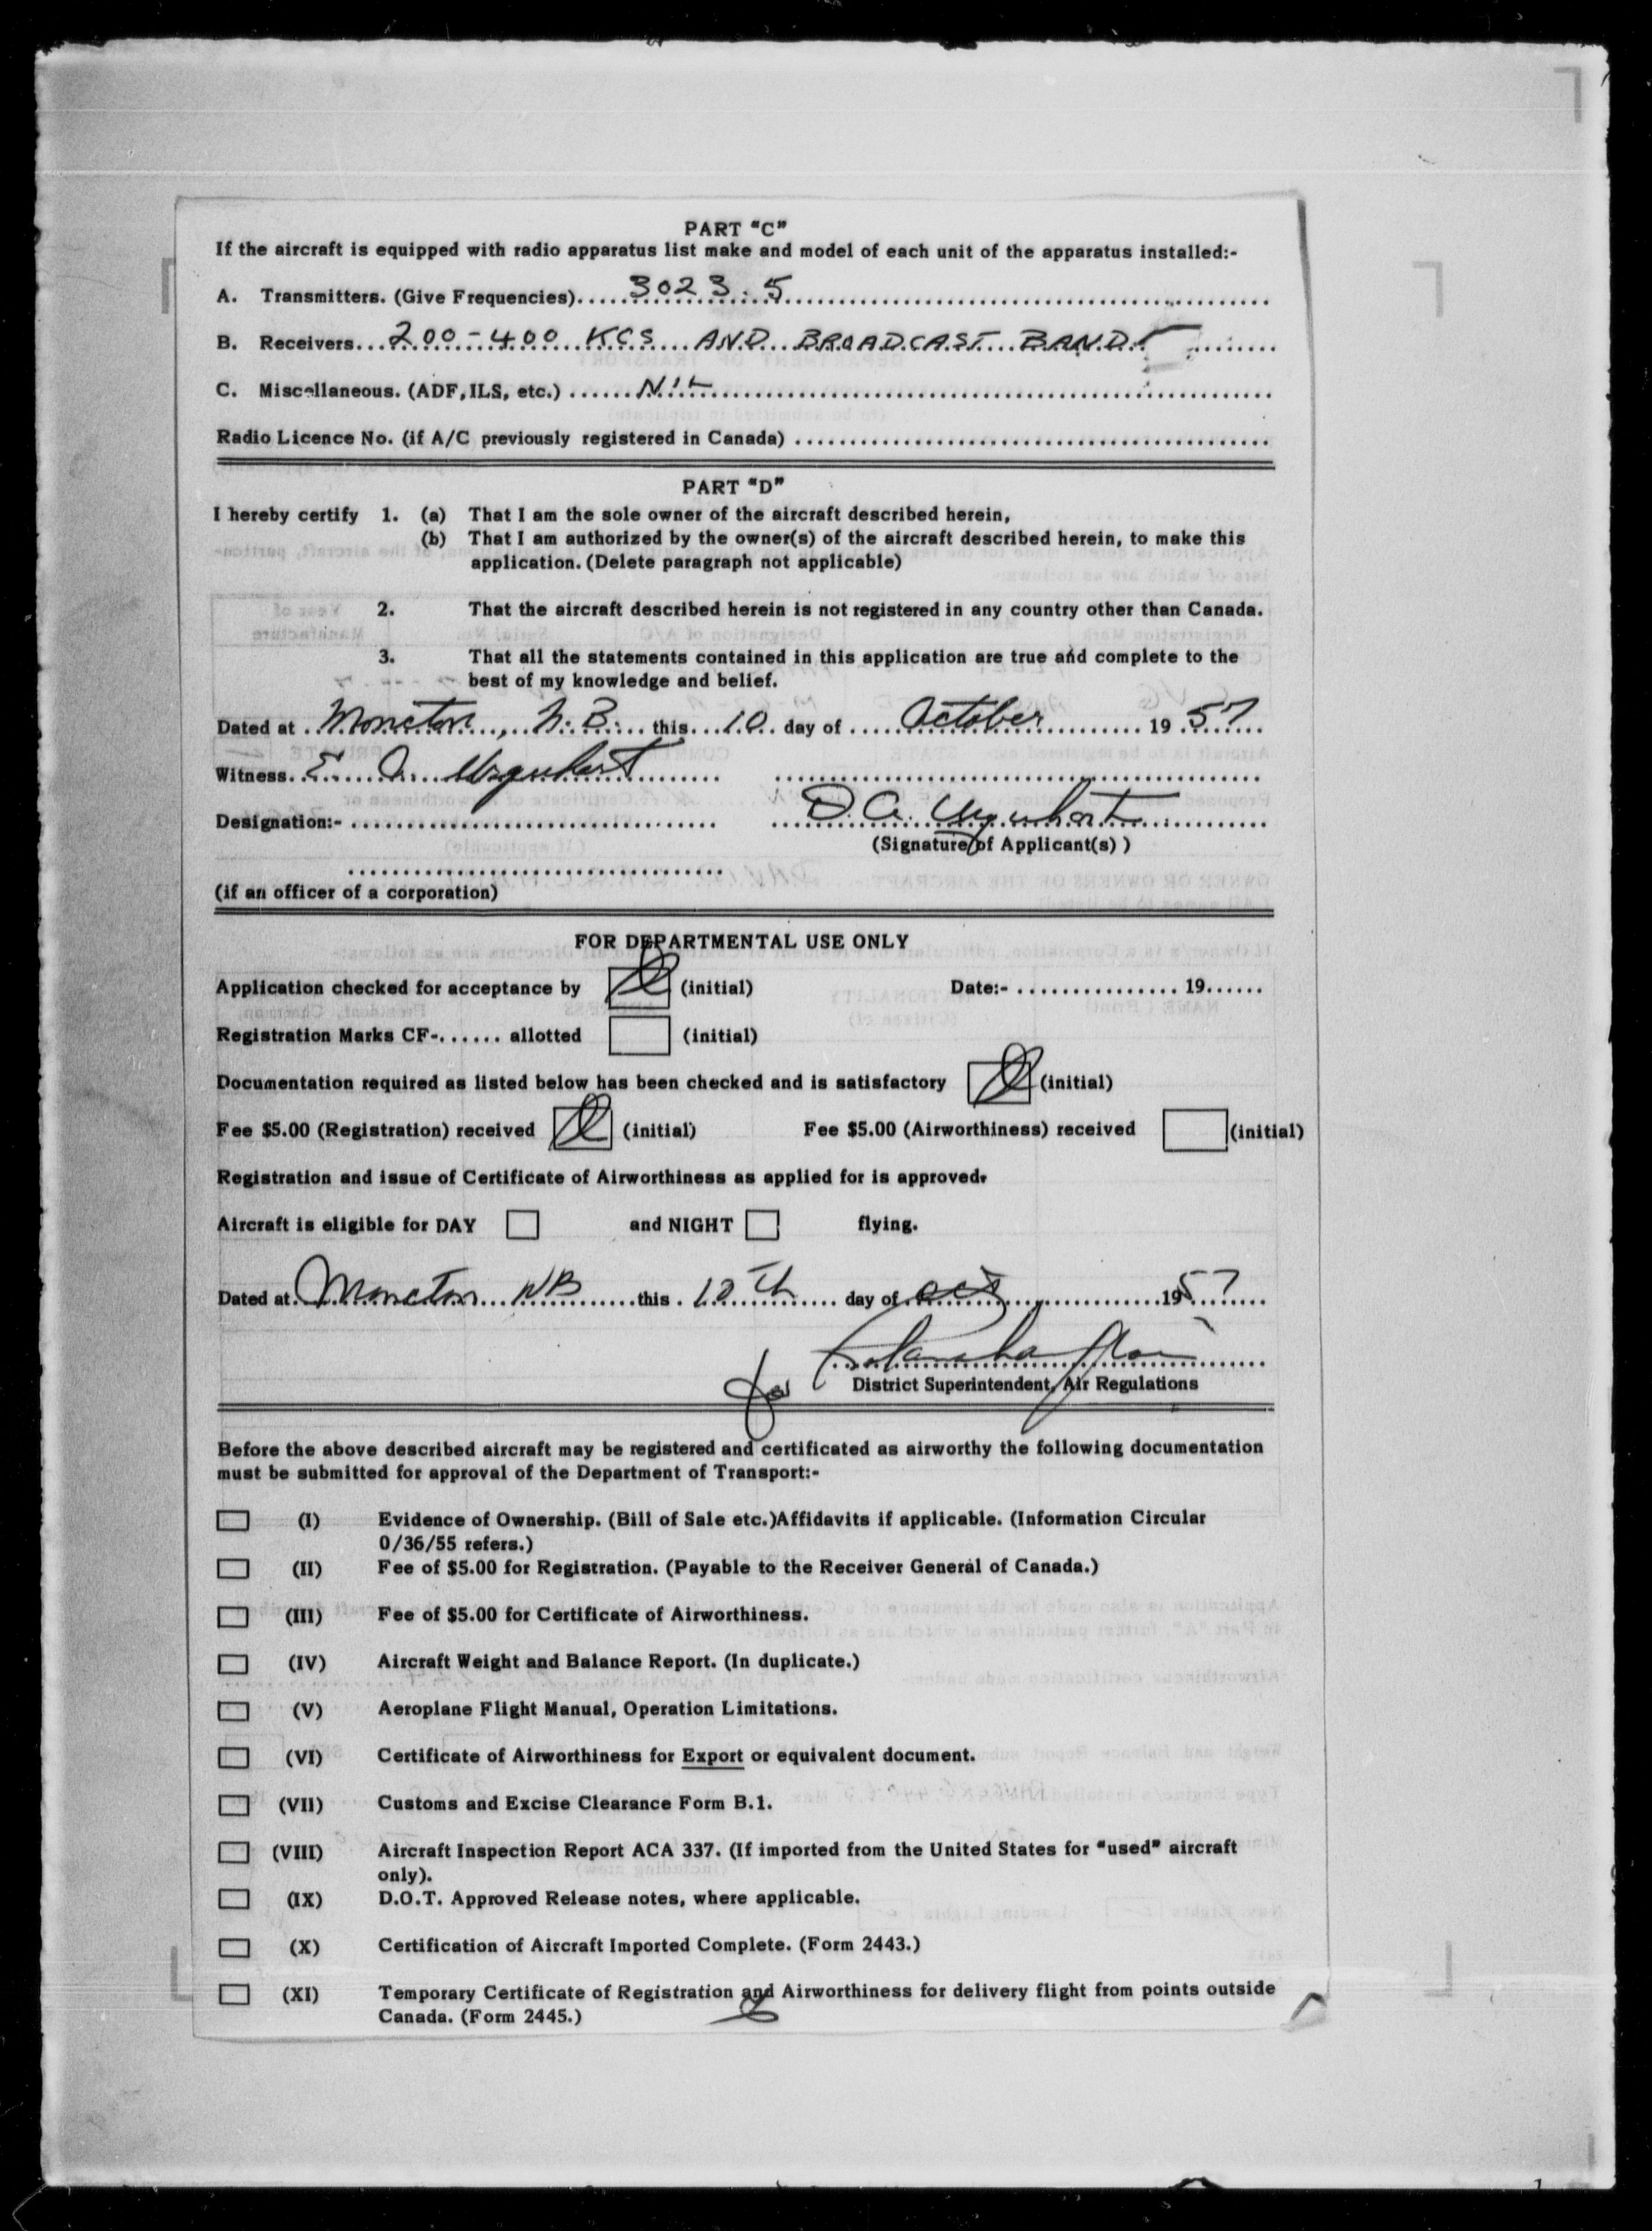 PART "C"
If the aircraft is equipped with radio apparatus list make and model of each unit of the apparatus installed:-
A. Transmitters. (Give Frequencies)..... 3023.5 ..........
B. Receivers... 200-400 KCS AND BROADCAST BAND ..........
C. Miscellaneous. (ADF, ILS, etc.) ...... NIL ..........
Radio Licence No. (if A/C previously registered in Canada) ..........
PART "D"
I hereby certify 1. (a) That I am the sole owner of the aircraft described herein,
(b) That I am authorized by the owner(s) of the aircraft described herein, to make this
application. (Delete paragraph not applicable)
2. That the aircraft described herein is not registered in any country other than Canada.
3. That all the statements contained in this application are true and complete to the
best of my knowledge and belief.
Dated at Moncton, N.B. this 10 day of October 19 57
Witness. E. A. Urquhart
D. A. Urquhart
Designation:- ..........
(Signature of Applicant(s) )
(if an officer of a corporation)
FOR DEPARTMENTAL USE ONLY
Application checked for acceptance by (initial) Date:- .......... 19......
Registration Marks CF-...... allotted (initial)
Documentation required as listed below has been checked and is satisfactory (initial)
Fee $5.00 (Registration) received (initial) Fee $5.00 (Airworthiness) received (initial)
Registration and issue of Certificate of Airworthiness as applied for is approved.
Aircraft is eligible for DAY and NIGHT flying.
Dated at Moncton NB this 10th day of Oct 1957
for
District Superintendent, Air Regulations
Before the above described aircraft may be registered and certificated as airworthy the following documentation
must be submitted for approval of the Department of Transport:-
(I) Evidence of Ownership. (Bill of Sale etc.)Affidavits if applicable. (Information Circular
0/36/55 refers.)
(II) Fee of $5.00 for Registration. (Payable to the Receiver General of Canada.)
(III) Fee of $5.00 for Certificate of Airworthiness.
(IV) Aircraft Weight and Balance Report. (In duplicate.)
(V) Aeroplane Flight Manual, Operation Limitations.
(VI) Certificate of Airworthiness for Export or equivalent document.
(VII) Customs and Excise Clearance Form B.1.
(VIII) Aircraft Inspection Report ACA 337. (If imported from the United States for "used" aircraft
only).
(IX) D.O.T. Approved Release notes, where applicable.
(X) Certification of Aircraft Imported Complete. (Form 2443.)
(XI) Temporary Certificate of Registration and Airworthiness for delivery flight from points outside
Canada. (Form 2445.)